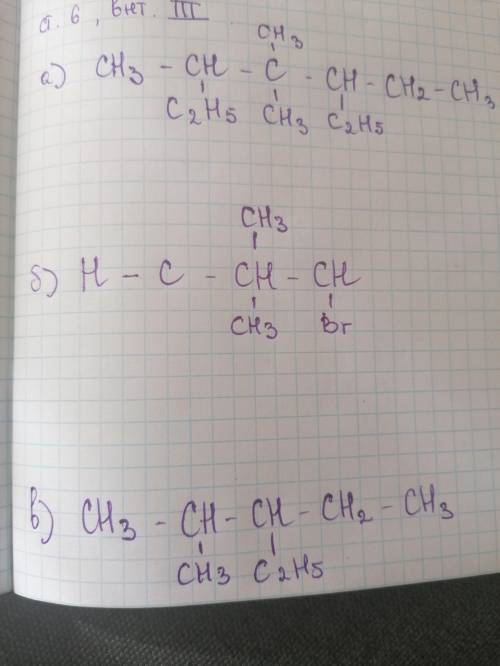 ст. 6, внт. III
CH3
а) CH3 - CH - C - CH - CH2 - CH3
C2H5 CH3 C2H5
CH3
б) H - C - CH - CH
CH3 Br
в) CH3 - CH - CH - CH2 - CH3
CH3 C2H5